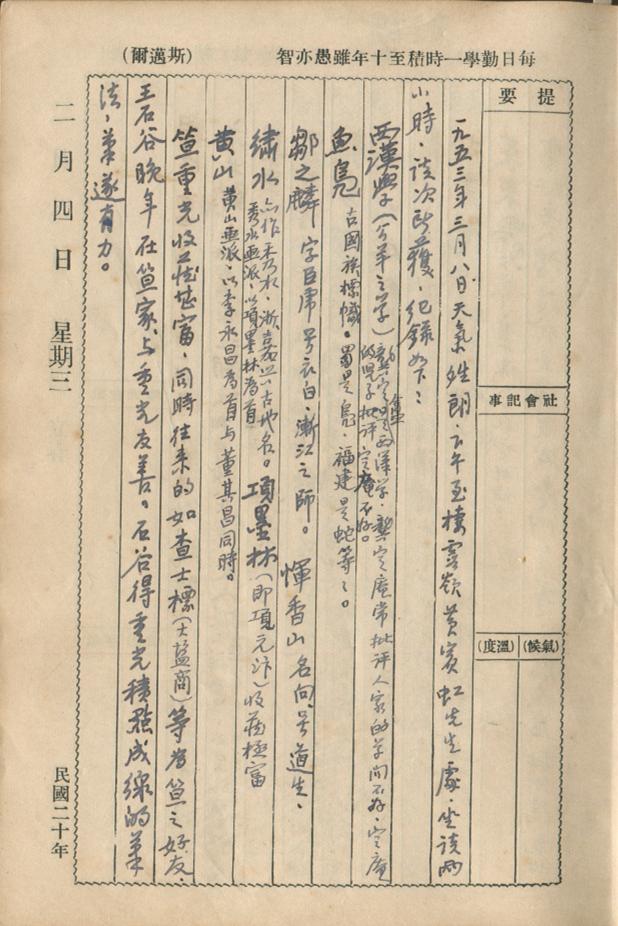 每日勤學一時積至十年雖愚亦智
(斯邁爾)
提要
社會記事
(氣候)
(溫度)
一九五三年三月八日天氣姓朗.下午至棲霞嶺黃賓虹先生處.坐談兩
小時.談次所獲.紀錄如下:
西漢學(公羊之學)龔定盦是西漢學.龔定庵常批評人家的學問不好.定庵
的兒子批評定庵不好。
魚鳧 古國族標幟.蜀是鳧.福建是蛇等等。
鄒之麟 字臣虎号衣白.漸江之師。惲香山名向.号道生.
繡水 亦作秀水.浙嘉興古地名。項墨林(即項元汴)收藏極富
秀水畫派.以項墨林為首
黃山 黃山畫派.以李永昌為首与董其昌同時。
笪重光收藏甚富.同時往来的如查士標(大鹽商)等為笪之好友.
王石谷晚年在笪家.与重光友善。石谷得重光積點成線的筆
法.筆遂有力。
二月四日 星期三
民國二十年